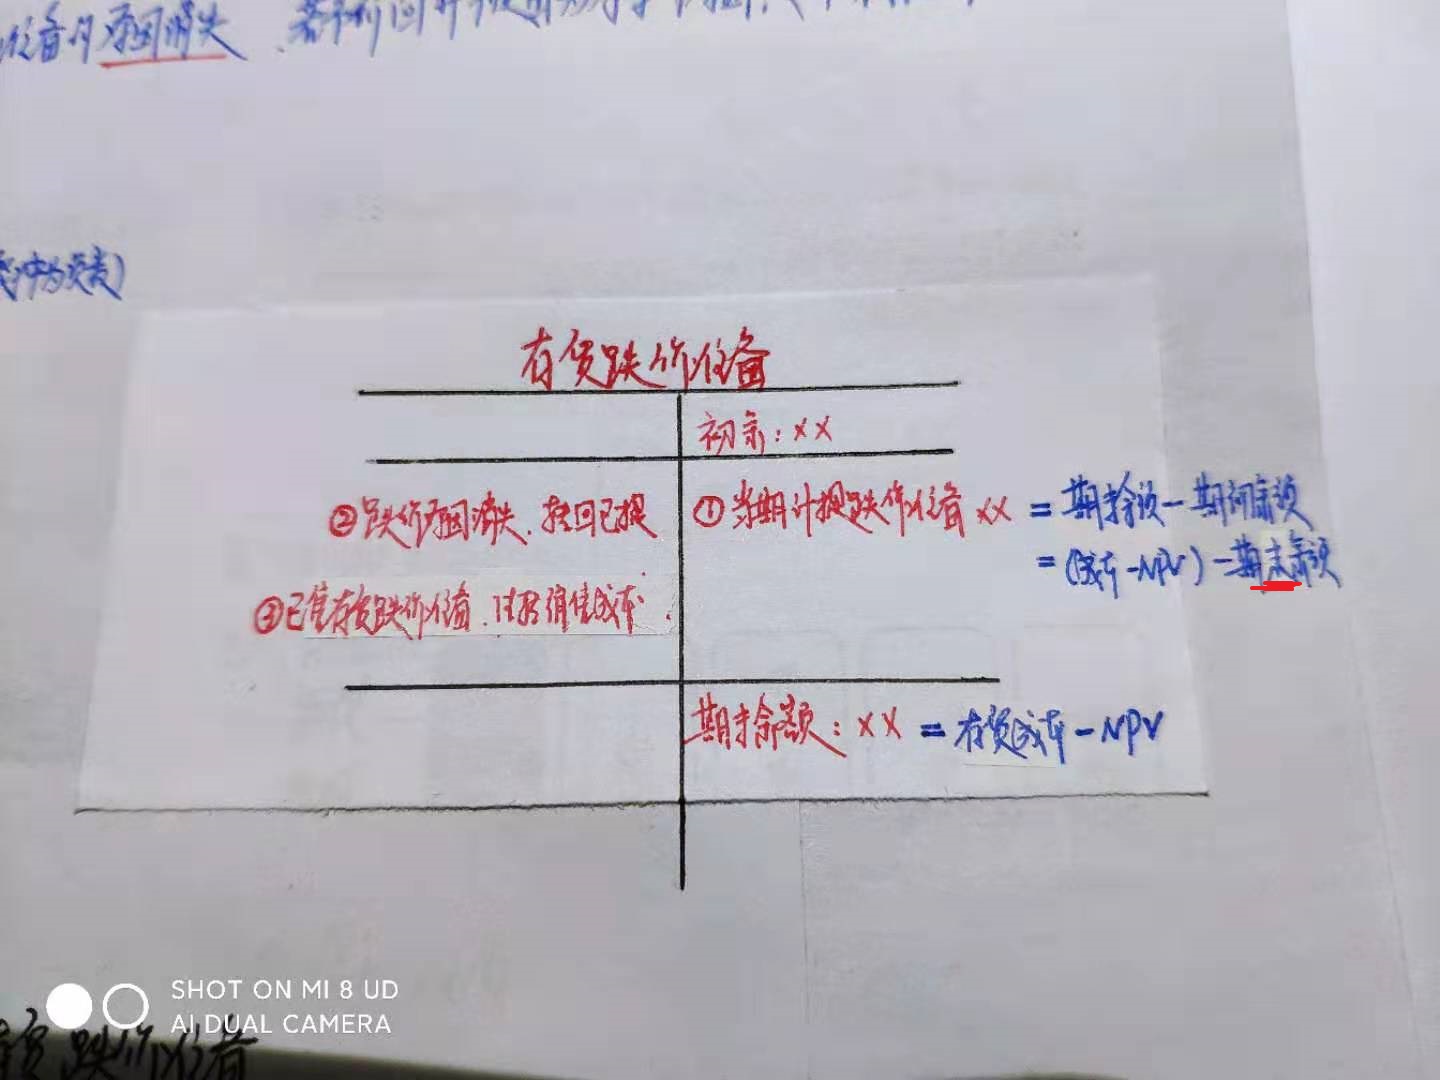 准备的原因消失
存货跌价准备
初余：××
②跌价原因消失、转回已提
①当期计提跌价准备××=期末余额-期初余额
=(成本-NPV)-期末余额
③已售存货跌价准备、结转销售成本.
期末余额：××=存货成本-NPV
SHOT ON MI 8 UD
AI DUAL CAMERA
存货跌价准备